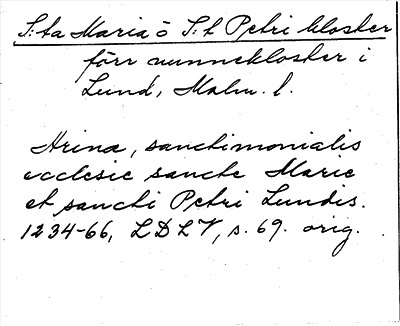 S:ta Maria o S:t Petri kloster
förr nunnekloster i
Lund, Malm. l.
Arina, sanctimonialis
ecclesie sancte Marie
et sancti Petri Lundis.
1234-66, LDLV, s. 69. orig.